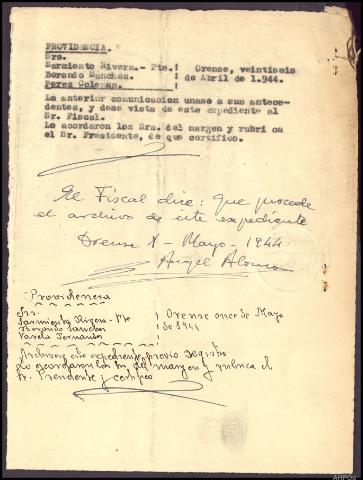 PROVIDENCIA.
Srs.
Sarmiento Rivera.- Pte.! Orense, veintiseis
Borondo Sanchez. ! de Abril de 1.944.
Perez Coleman. !
La anterior comunicacion unase a sus antece-
dentes, y dese vista de este expediente al
Sr. Fiscal.
Lo acordaron los Srs. del margen y rubri ca
el Sr. Presidente, de que certifico.
El Fiscal dice: que procede
el archivo de este expediente
Orense 8 - Mayo - 1944
Angel Alonso
Providencia
Srs.
Sarmiento Rivera - Pte ! Orense once de Mayo
Borondo Sanchez ! de 1944
Varela Fernandez !
Archivese este expediente previo registro
Lo acordaron los Srs. del margen y rubrica el
Sr. Presidente; certifico
AHPOU